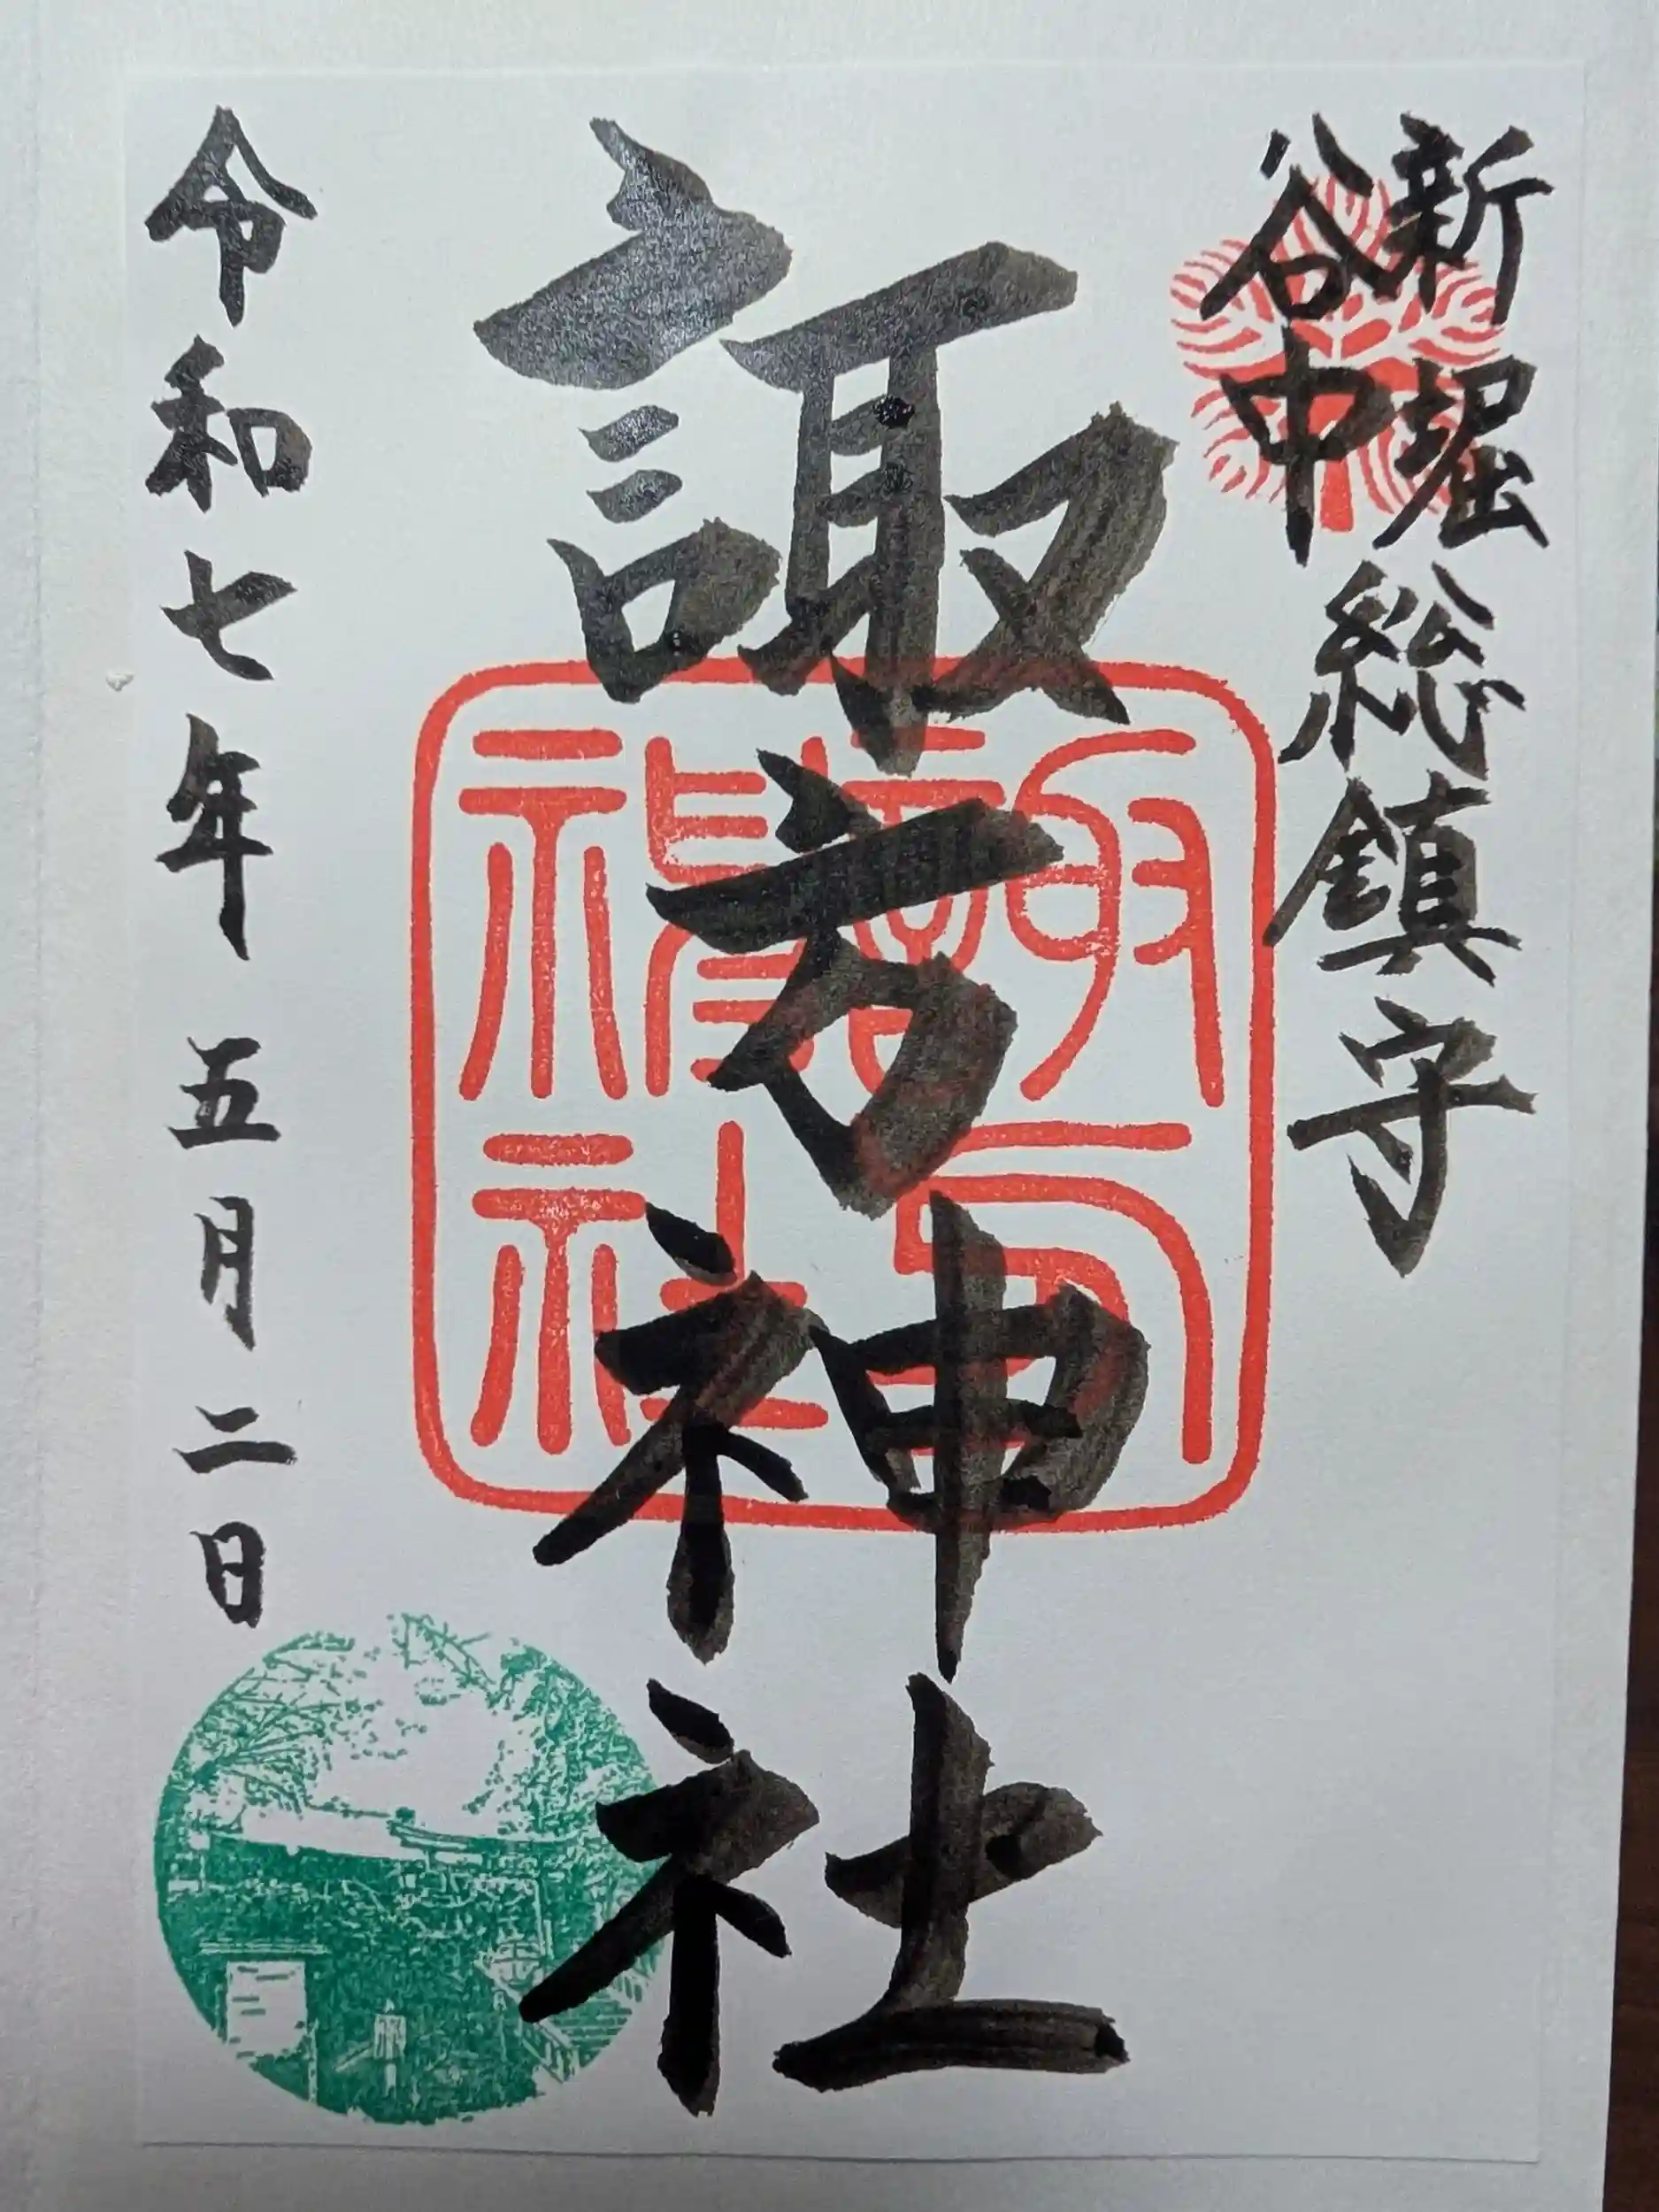 新堀
谷中
総鎮守
諏方神社
諏方神社
令和七年五月二日